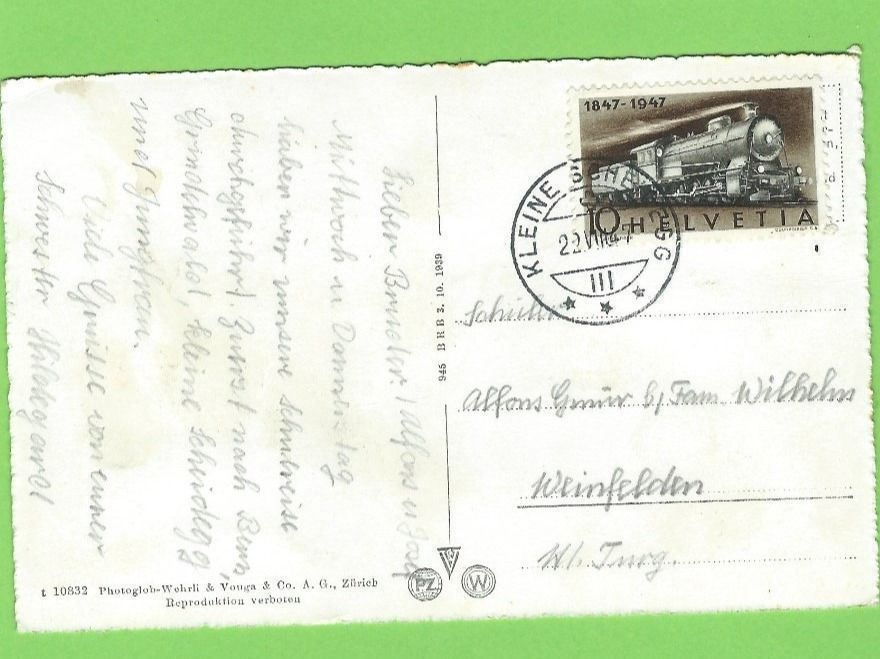 Lieber Bruder! Alfons u Josef
Mittwoch u Donnerstag
haben wir unsere Schulreise
durchgeführt. Zuerst nach Bern,
Grindelwald, kleine Scheidegg
und Jungfrau.
Viele Grüsse von euner
Schwester Hildegard
945 BRB 3. 10. 1939
1847-1947
10 HELVETIA
KLEINE SCHEIDEGG
22.VIII.47
III
Schüler
Alfons Gmür b/ Fam Wilhelm
Weinfelden
Kt. Turg.
t 10832 Photoglob-Wehrli & Vouga & Co. A. G., Zürich
Reproduktion verboten
PZ
W